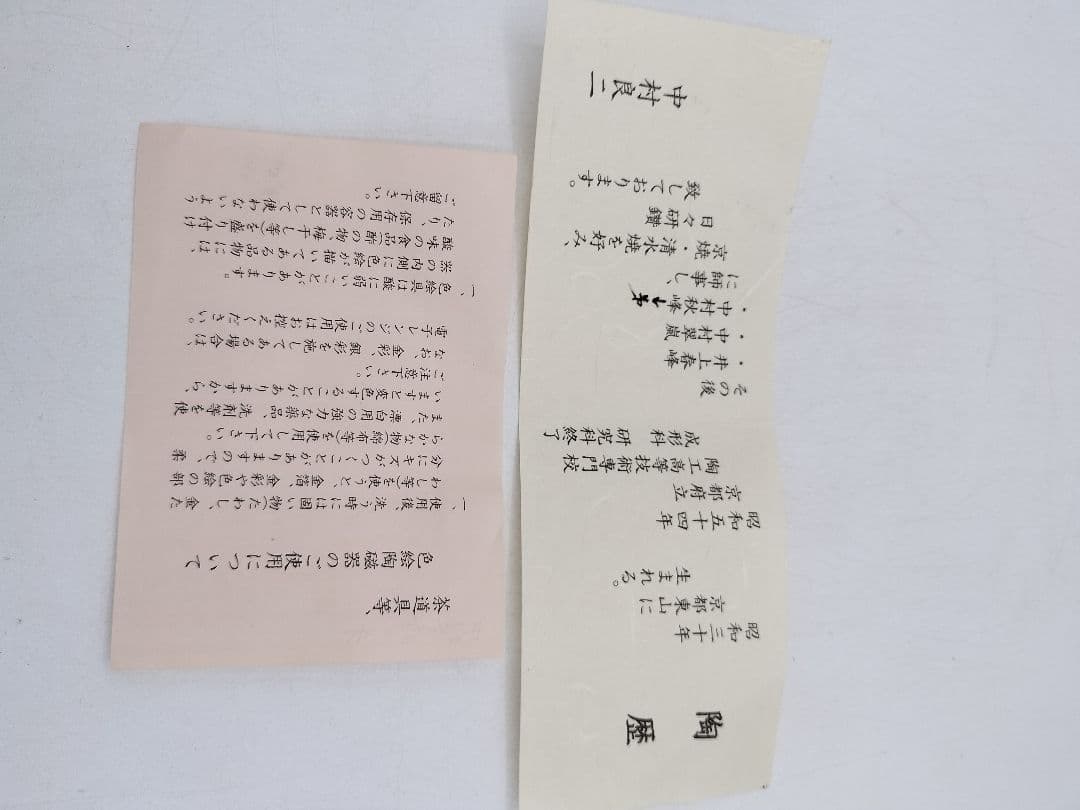 陶歴
昭和三十年
京都東山に
生まれる。
昭和五十四年
京都府立
陶工高等技術専門校
成形科 研究科終了
その後
・井上春峰
・中村翠嵐
・中村秋峰
に師事し、
京焼・清水焼を好み、
日々研鑽
致しております。
中村良二
茶道具等、
色絵陶磁器のご使用について
一、使用後、洗う時には固い物(たわし、金た
わし等)を使うと、金箔、金彩や色絵の部
分にキズがつくことがありますので、柔
らかな物(綿布等)を使用して下さい。
また、漂白用の強力な薬品、洗剤等を使
いますと変色することがありますから、
ご注意下さい。
なお、金彩、銀彩を施してある場合は、
電子レンジのご使用はお控えください。
一、色絵具は酸に弱いことがあります。
器の内側に色絵が描いてある品物には、
酸味の食品(酢の物、梅干し等)を盛り付け
たり、保存用の容器として使わないよう
ご留意下さい。